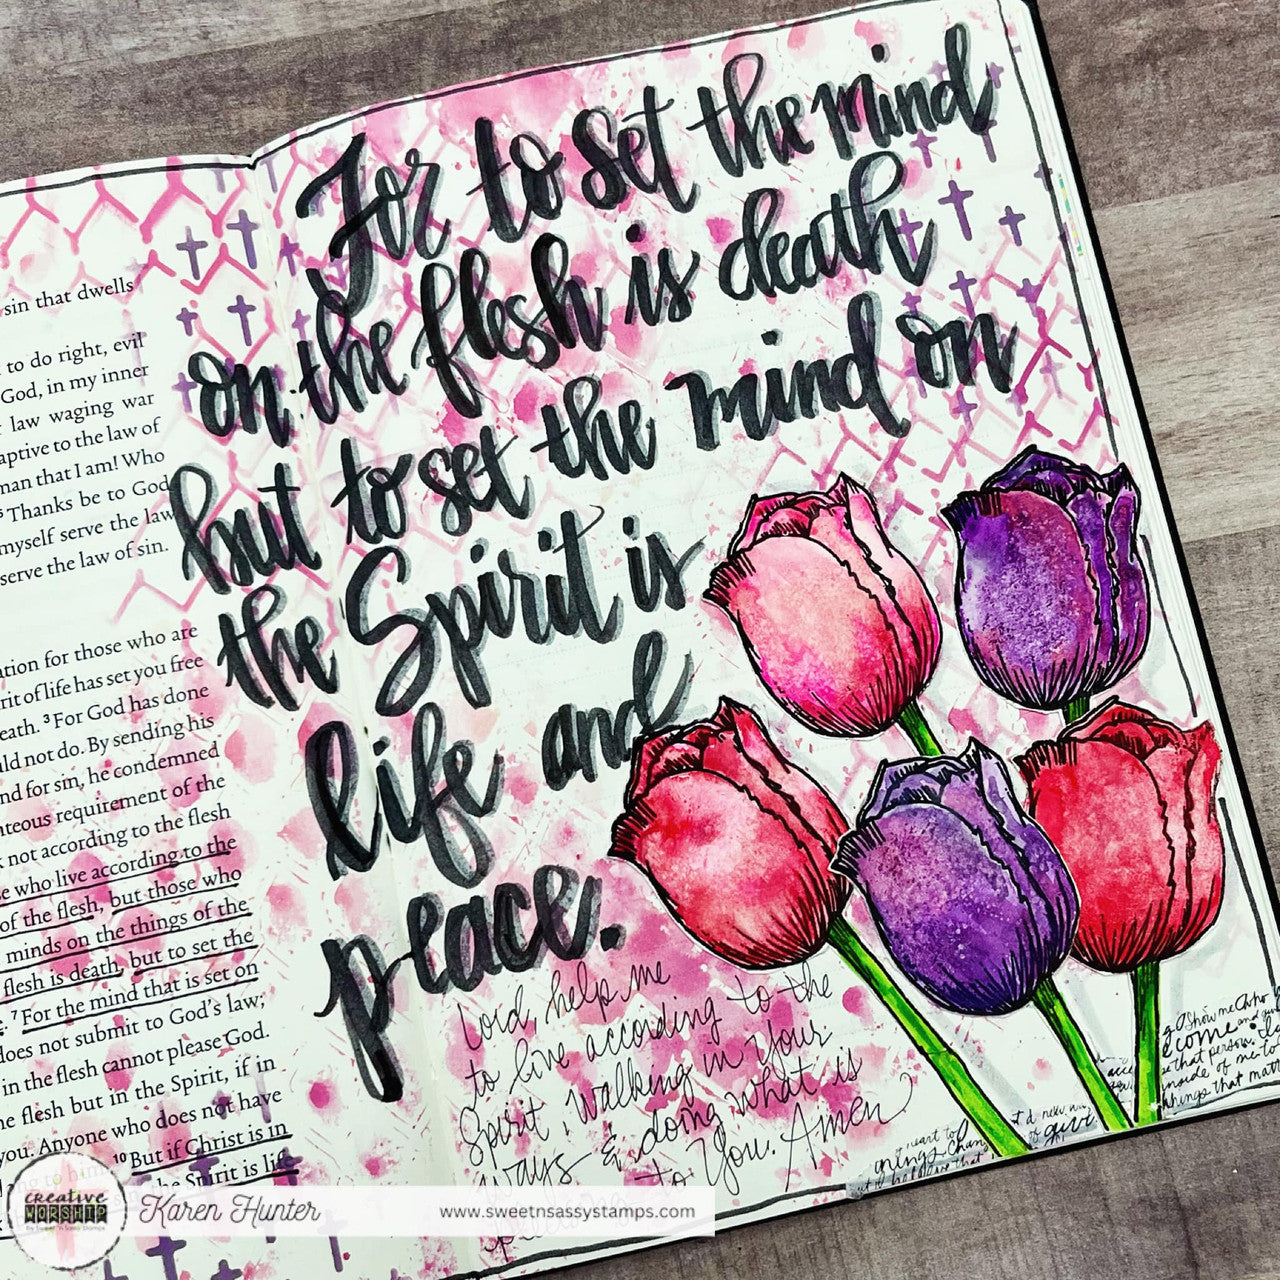 For to set the mind
on the flesh is death
but to set the mind on
the Spirit is
life and
peace.
sin that dwells
to do right, evil
God, in my inner
law waging war
captive to the law of
man that I am! Who
Thanks be to God
myself serve the law
serve the law of sin.
ation for those who are
rit of life has set you free
eath. 3 For God has done
uld not do. By sending his
nd for sin, he condemned
hteous requirement of the
k not according to the flesh
e who live according to the
of the flesh, but those who
minds on the things of the
flesh is death, but to set the
7 For the mind that is set on
does not submit to God's law;
in the flesh cannot please God.
e flesh but in the Spirit, if in
you. Anyone who does not have
10 But if Christ is in
he Spirit is life
Lord, help me
to live according to the
Spirit, walking in Your
ways & doing what is
to You. Amen
Show me
come and
that person.
inside of me to
things that matt
heart to
creative
WORSHIP
Karen Hunter
www.sweetnsassystamps.com